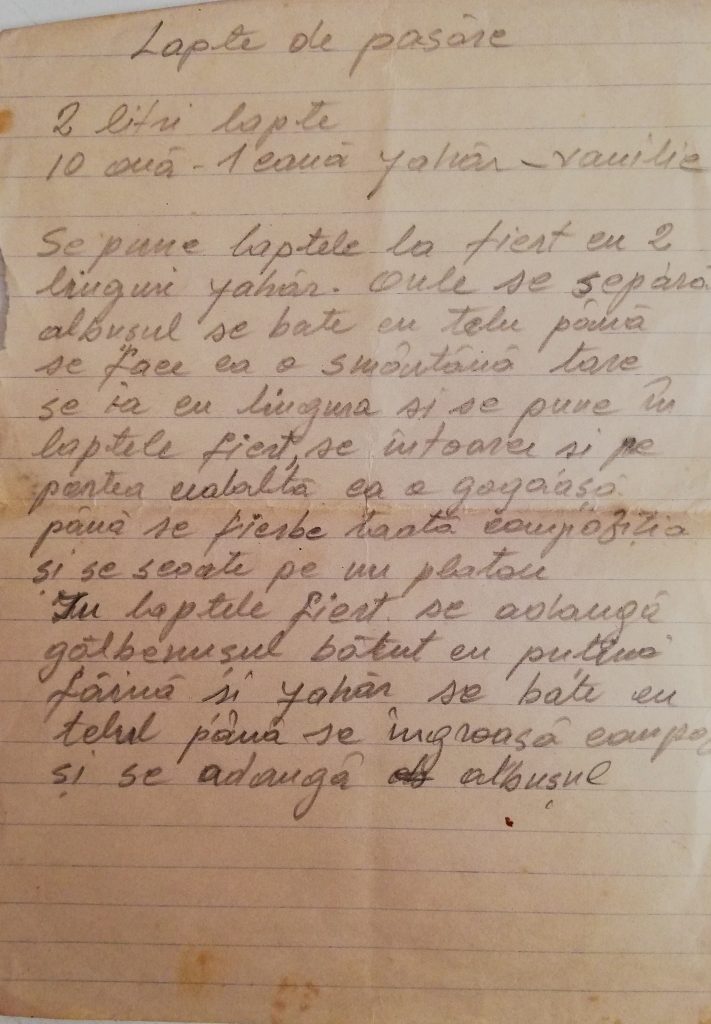 Lapte de pasăre
2 litri lapte
10 ouă - 1 cană zahăr - vanilie
Se pune laptele la fiert cu 2
linguri zahăr. Oule se separă
albușul se bate cu telu până
se face ca o smântână tare
se ia cu lingura si se pune în
laptele fiert, se întoarce si pe
partea cealaltă ca o gogoașă
până se fierbe toată compoziția
și se scoate pe un platou
In laptele fiert se adaugă
gălbenușul bătut cu puțină
făină și zahăr se bate cu
telul până se îngroașă compoz
și se adaugă albușul